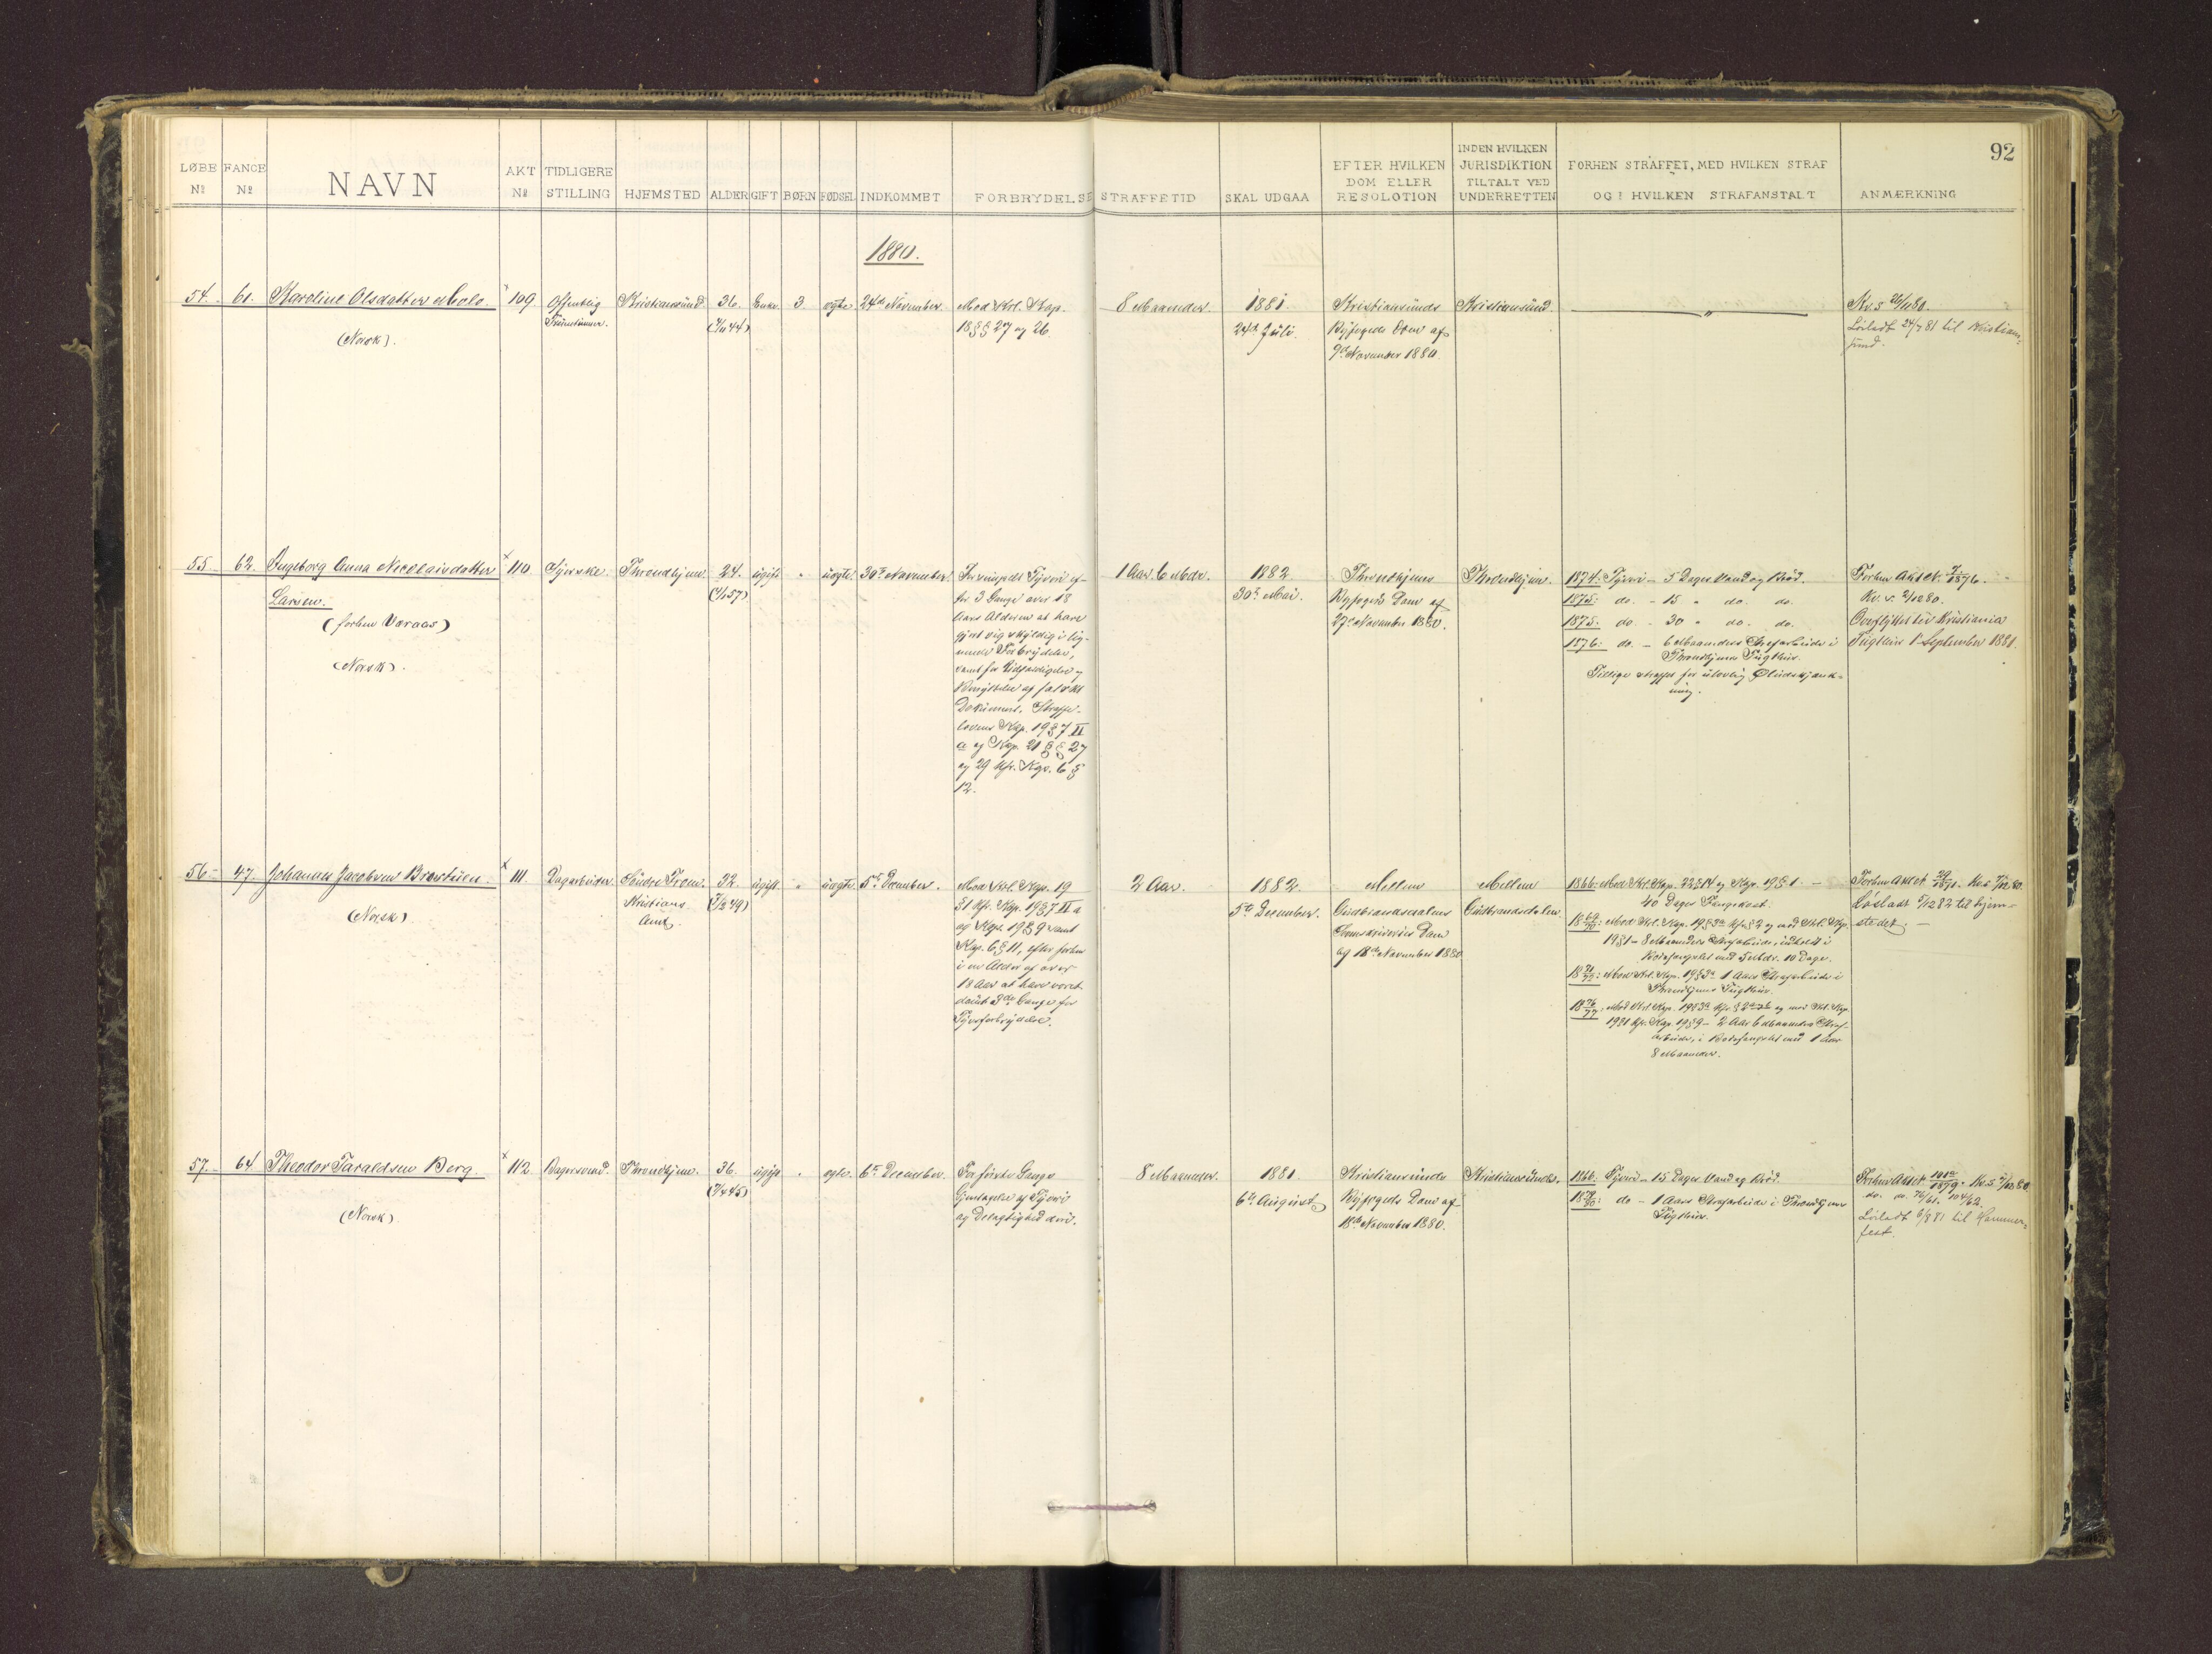 92
LØBE No
FANGE No
NAVN
AKT No
TIDLIGERE STILLING
HJEMSTED
ALDER
GIFT
BØRN
FØDSEL
INDKOMMET
FORBRYDELSE
STRAFFETID
SKAL UDGAA
EFTER HVILKEN DOM ELLER RESOLOTION
INDEN HVILKEN JURISDIKTION TILTALT VED UNDERRETTEN
FORHEN STRAFFET, MED HVILKEN STRAF OG I HVILKEN STRAFANSTALT
ANMÆRKNING
1880.
54. 61. Karoline Olsdatter Molo.
(Norsk).
109.
Offentlig
Fruentimmer.
Kristianssund.
36.
Enke. 3. ægte. 24de November.
Mod Krl. Kap.
18 §§ 27 og 26.
8 Maaneder.
1881.
24de Juli.
Kristianssunds
Byfogeds Dom af
9de November 1880.
Kristianssund.
Kv. 5 26/11 80.
Løsladt 24/7 81 til Kristians-
sund.
55. 62. Ingeborg Anna Nicolaisdatter
Larsen.
(forhen Varaas)
(Norsk).
110.
Syerske.
Throndhjem.
24.
ugift. " uægte. 30te November.
for 3 Gange over 18
Aars Alderen at have
gjort sig skyldig i lig-
nende Forbrydelse,
samt for Udfærdigelse og
Benyttelse af falskt
Dokument. Straffe-
lovens Kap. 19 § 7 II
a og Kap. 21 §§ 27
og 29 kfr. Kap. 6 §
12.
1 Aar 6 Mdr.
1882.
30te Mai.
Throndhjems
Byfogeds Dom af
27de November 1880.
Throndhjem.
1874: Tyveri - 5 Dages Vand og Brød.
1875: do. - 15 " do. do.
1875: do. - 30 " do. do.
1876: do. - 6 Maaneders Strafarbeide i
Throndhjems Tugthus.
Tillige straffet for ulovlig Øludskjænk-
ning.
Forhen Akt No 7/1876.
Kv. 5 2/12 80.
Overflyttet til Kristiania
Tugthus 1 September 1881.
56. 47. Johannes Jacobsen Brostuen.
(Norsk).
111.
Dagarbeider.
Søndre Fron.
Kristians
Amt.
32.
ugift. " uægte. 5te December.
Mod Krl. Kap. 19
§ 1 kfr. Kap. 19 § 7 II a
og Kap. 19 § 9 samt
Kap. 6 § 11, efter forhen
i en Alder af over
18 Aar at have været
dømt 3de Gange for
Tyvsforbrydelse.
2 Aar.
1882.
5te December.
Mellem
Gudbrandsdalens
Sorenskriveries Dom
af 18de November 1880.
Mellem
Gudbrandsdalen.
1866: Mod Krl. Kap. 22 § 14 og Kap. 19 § 1. -
40 Dages Fangekost.
1869/70: Mod Krl. Kap. 19
19 § 1 - 8 Maaneders Strafarbeide, udholdt i
Bodsfængslet med 5 Mdr. 10 Dage.
Mod Krl. Kap. 19 1 Aars Strafarbeide i
Throndhjems Tugthus.
1876/77: Mod Krl. Kap. 19
19 § 1 kfr. Kap. 19 § 9 - 2 Aars 6 Maaneders Straf-
arbeide, i Bodsfængslet med 1 Aar
8 Maaneder.
Forhen Akt No 29/1871. Kv. 5 7/12 80.
Løsladt 5/12 82 til Hjem-
stedet. -
57. 64. Theodor Taraldsen Berg.
(Norsk).
112.
Throndhjem.
36.
ugift. " ægte. 6te December.
For første Gange
Gjentagelse af Tyveri
og Delagtighed deri.
8 Maaneder.
1881.
6te August.
Kristianssunds
Byfogeds Dom af
18de November 1880.
Kristianssunds.
1866: Tyveri - 15 Dages Vand og Brød.
1879/80: do - 1 Aars Strafarbeide i Throndhjems
Tugthus.
Forhen Akt No
do. do. 76/61. 104/62.
Løsladt 6/8 81 til Hammer-
fest.